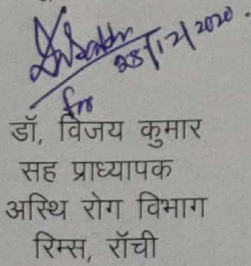 28/12/2020.
for
डॉ, विजय कुमार
सह प्राध्यापक
अस्थि रोग विभाग
रिम्स, रॉची